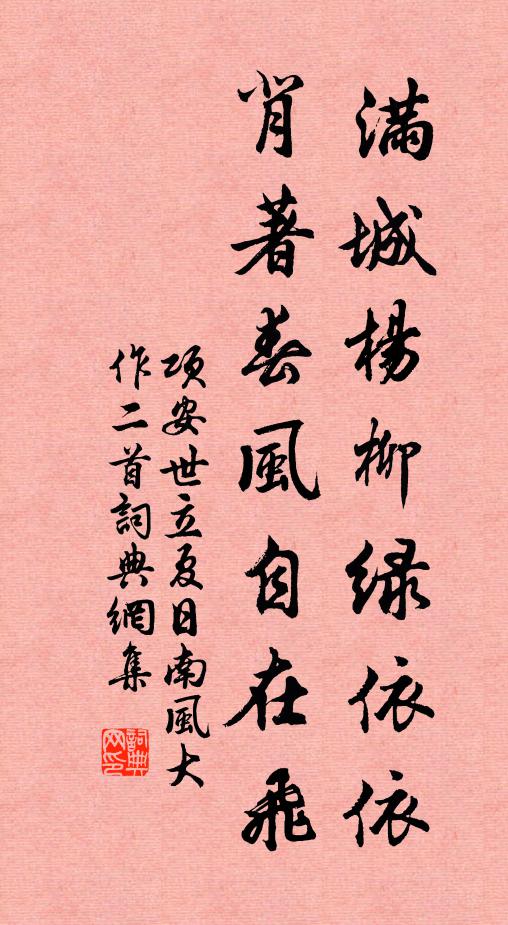 滿城楊柳綠依依
肖著春風自在飛
項安世立夏日南風大
作二首詞典網集
詞典
网印